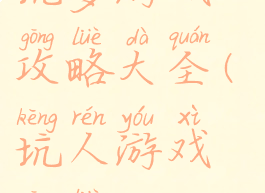 gōng lüè dà quán
攻略大全(
kēng rén yóu xì
坑人游戏